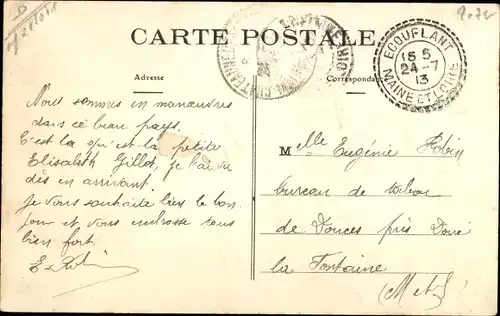 CARTE POSTALE
Adresse
Correspondance
ECOUFLANT
15 5
24-7
13
MAINE ET LOIRE
Nous sommes en manœuvres
dans ce beau pays.
C'est là qu'est la petite
Elisabeth Gillot, je l'ai vu
dès en arrivant.
Je vous souhaite bien le bon-
jour et vous embrasse tous
bien fort.
E. Robin
Melle Eugénie Robin
bureau de tabac
de Douces près Doué
la Fontaine
(M et L)